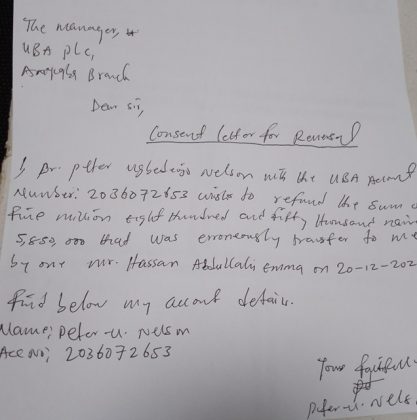 The Manager,
UBA Plc,
Branch
Dear Sir,
Consent letter for Reversal
I Dr. Peter Nelson with the UBA Account
Number: 2036072653 wishes to refund the sum o
five million eight Hundred and fifty thousand nair
5,850,000 that was erroneously transfer to me
by one Mr. Hassan Abdullahi Emma on 20-12-202
find below my account details.
Name; Peter-U. Nelson
Acc No; 2036072653
Yours faithfull
Peter-U. Nels